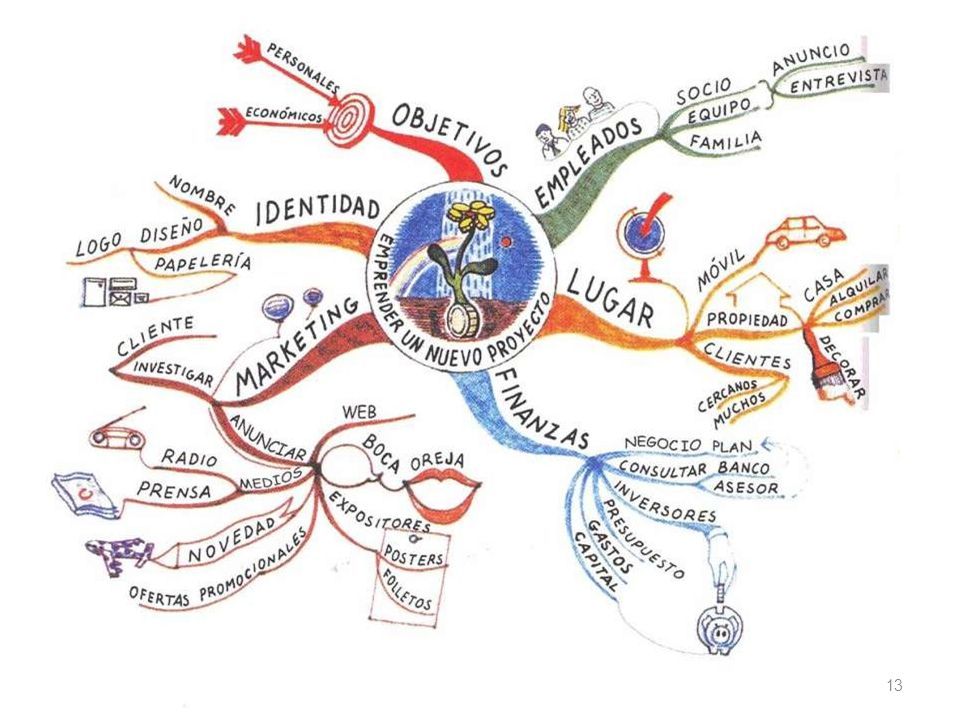 EMPRENDER UN NUEVO PROYECTO
OBJETIVOS
PERSONALES
ECONÓMICOS
EMPLEADOS
SOCIO
EQUIPO
FAMILIA
ANUNCIO
ENTREVISTA
LUGAR
MÓVIL
PROPIEDAD
CASA
ALQUILAR
COMPRAR
DECORAR
CLIENTES
CERCANOS
MUCHOS
FINANZAS
NEGOCIO PLAN
CONSULTAR BANCO
ASESOR
INVERSORES
PRESUPUESTO
GASTOS
CAPITAL
MARKETING
CLIENTE
INVESTIGAR
ANUNCIAR
WEB
BOCA OREJA
EXPOSITORES
POSTERS
FOLLETOS
MEDIOS
RADIO
PRENSA
NOVEDAD
OFERTAS PROMOCIONALES
IDENTIDAD
NOMBRE
LOGO DISEÑO
PAPELERÍA
13